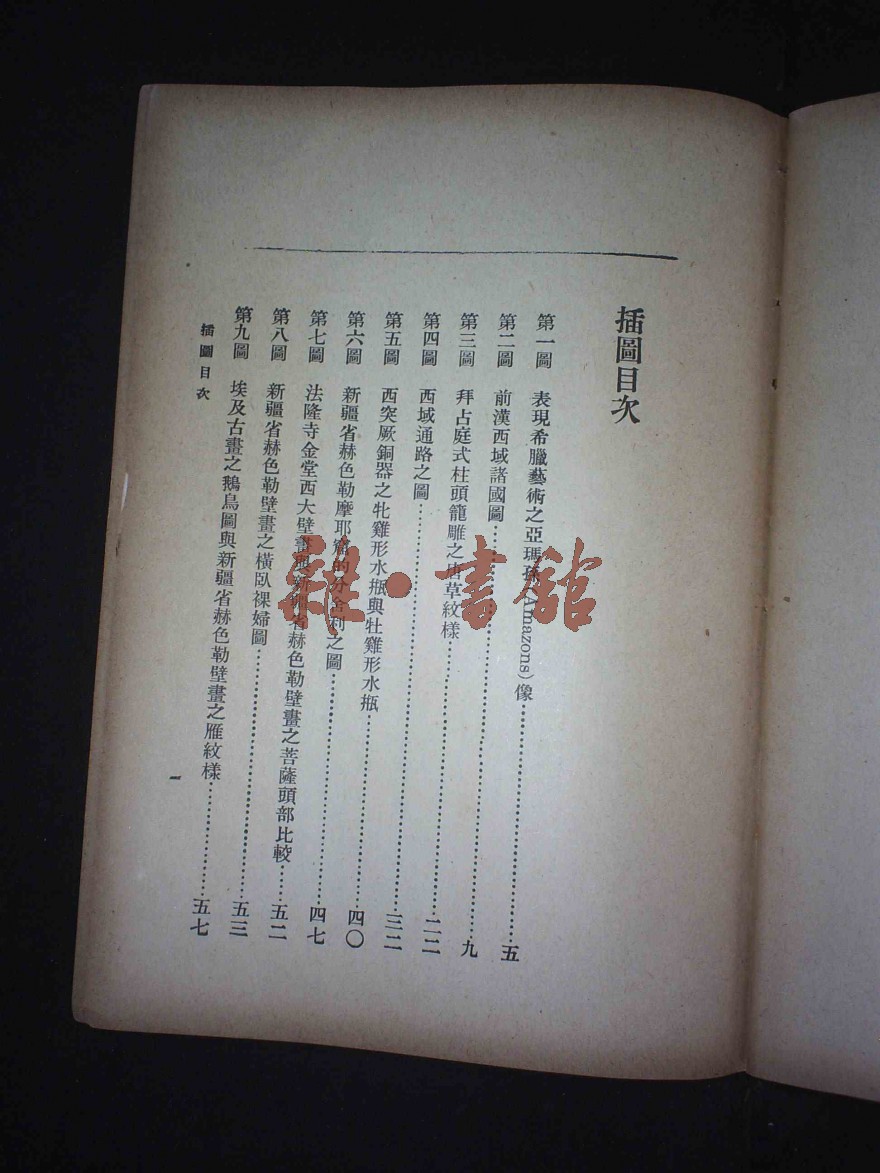 插圖目次
第一圖 表現希臘藝術之亞瑪孫(Amazons)像……五
第二圖 前漢西域諸國圖……九
第三圖 拜占庭式柱頭籠雕之唐草紋樣……二二
第四圖 西域通路之圖……三二
第五圖 西突厥銅器之牝雞形水瓶與牡雞形水瓶……四〇
第六圖 新疆省赫色勒摩耶窟的分舍利之圖……四七
第七圖 法隆寺金堂西大壁畫與新疆省赫色勒壁畫之菩薩頭部比較……五二
第八圖 新疆省赫色勒壁畫之橫臥裸婦圖……五三
第九圖 埃及古畫之鵝鳥圖與新疆省赫色勒壁畫之雁紋樣……五七
插圖目次 一
雜·書館